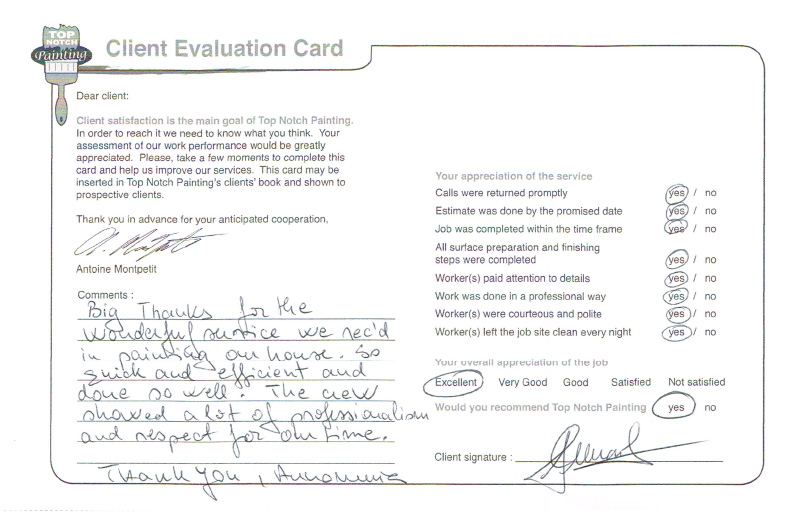 TOP
NOTCH
Painting
Client Evaluation Card
Dear client:
Client satisfaction is the main goal of Top Notch Painting.
In order to reach it we need to know what you think. Your
assessment of our work performance would be greatly
appreciated. Please, take a few moments to complete this
card and help us improve our services. This card may be
inserted in Top Notch Painting's clients' book and shown to
prospective clients.
Thank you in advance for your anticipated cooperation,
A. Montpetit
Antoine Montpetit
Comments :
Big Thanks for the
wonderful service we rec'd
in painting our house. So
quick and efficient and
done so well. The crew
showed a lot of professionalism
and respect for our time.
Thank you,
Your appreciation of the service
Calls were returned promptly yes / no
Estimate was done by the promised date yes / no
Job was completed within the time frame yes / no
All surface preparation and finishing
steps were completed yes / no
Worker(s) paid attention to details yes / no
Work was done in a professional way yes / no
Worker(s) were courteous and polite yes / no
Worker(s) left the job site clean every night yes / no
Your overall appreciation of the job
Excellent Very Good Good Satisfied Not satisfied
Would you recommend Top Notch Painting yes no
Client signature :